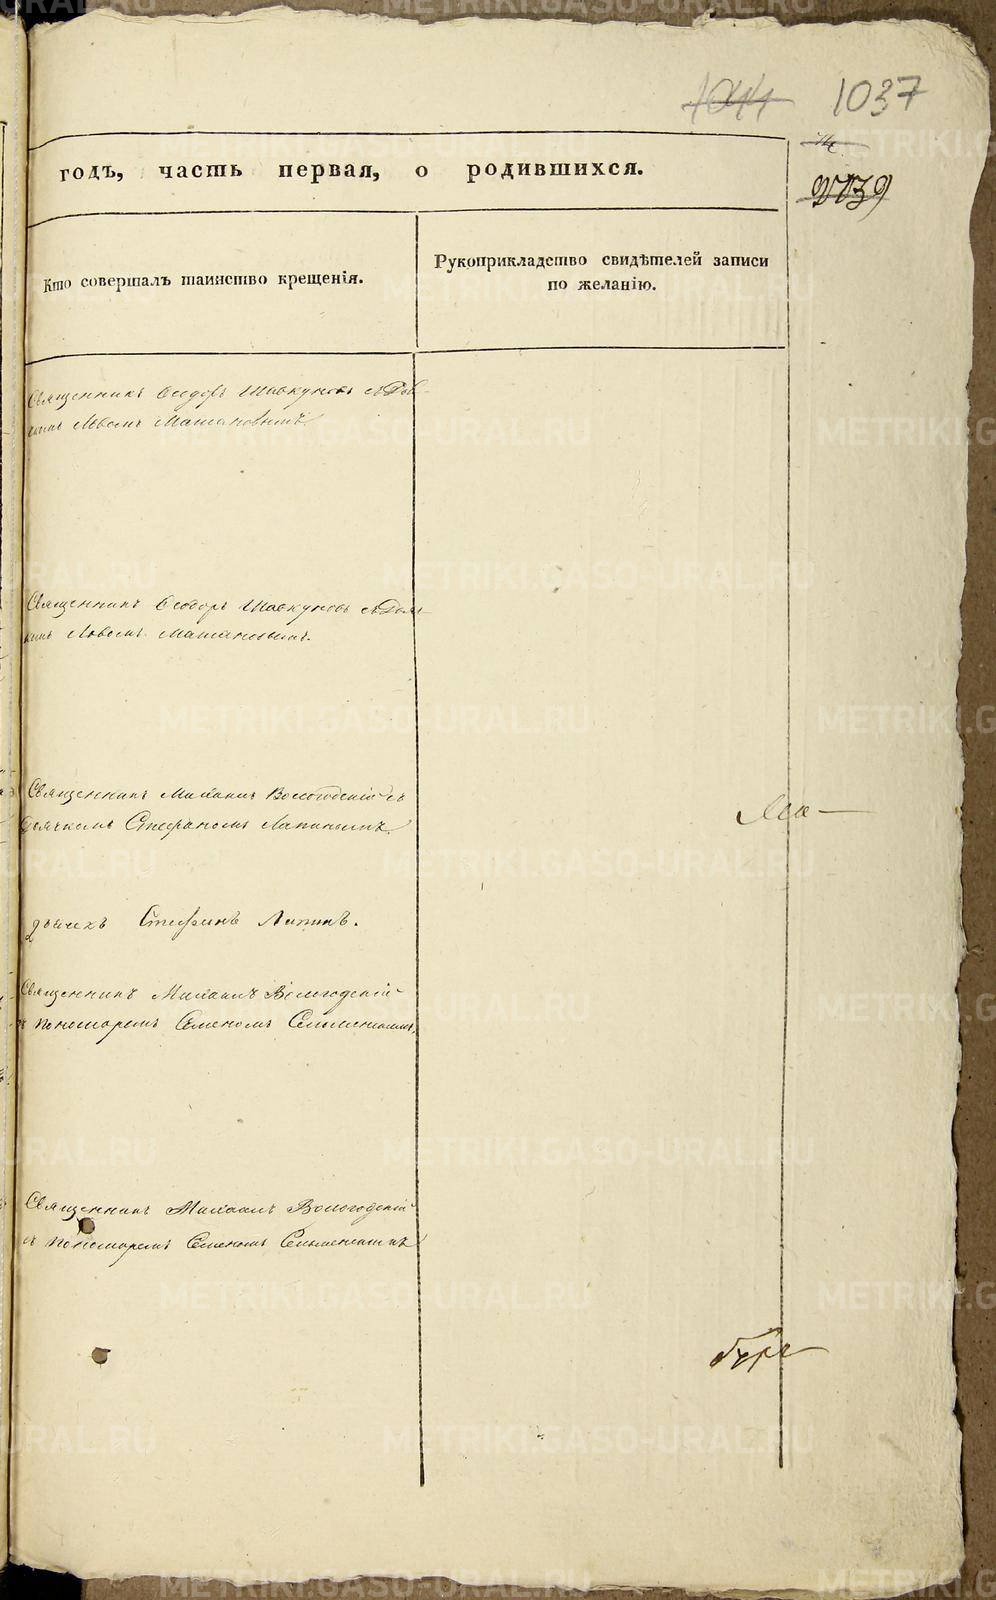 1044 1037
2739
годъ, часть первая, о родившихся.
Кто совершалъ таинство крещенія.
Рукоприкладство свидѣтелей записи
по желанію.
Священникъ Ѳеодоръ Шавкуновъ
Львомъ
Священникъ Ѳеодоръ Шавкуновъ
Львомъ
Священникъ Михаилъ Вологодскій съ
Дьячкомъ Стефаномъ Лапинымъ
дьячекъ Стефанъ Лапинъ.
Священникъ Михаилъ Вологодскій
съ пономаремъ Семеномъ
Священникъ Михаилъ Вологодскій
съ пономаремъ Семеномъ
METRIKI.GASO-URAL.RU